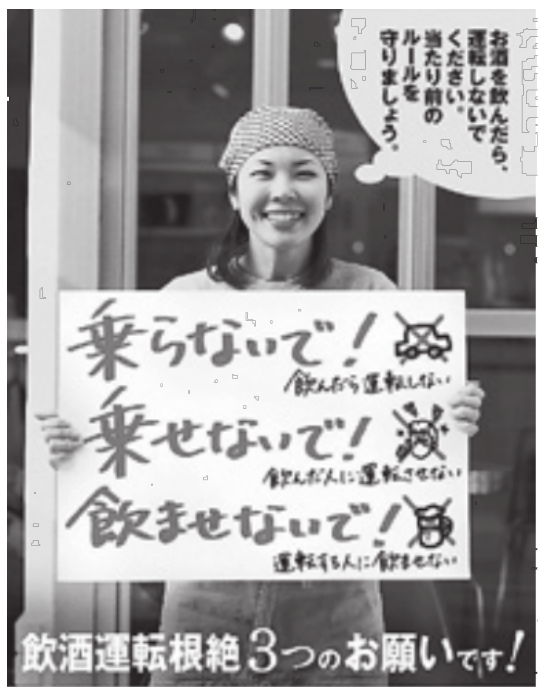 お酒を飲んだら、
運転しないで
ください。
当たり前の
ルールを
守りましょう。
乗らないで!
飲んだら運転しない
乗せないで!
飲んだ人に運転させない
飲ませないで!
運転する人に飲ませない
飲酒運転根絶3つのお願いです!